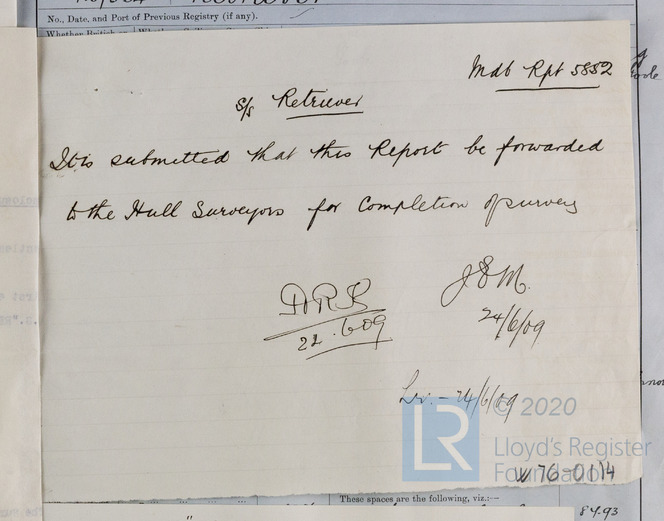 No., Date, and Port of Previous Registry (if any).
Mdb Rpt 5852
s/s Retriever
It is submitted that this Report be forwarded
to the Hull Surveyors for Completion of survey
22.6.09
J S M.
24/6/09
24/6/09
© 2020
LR
Lloyd's Register
Foundation
W76-0114
These spaces are the following, viz.:—
8493